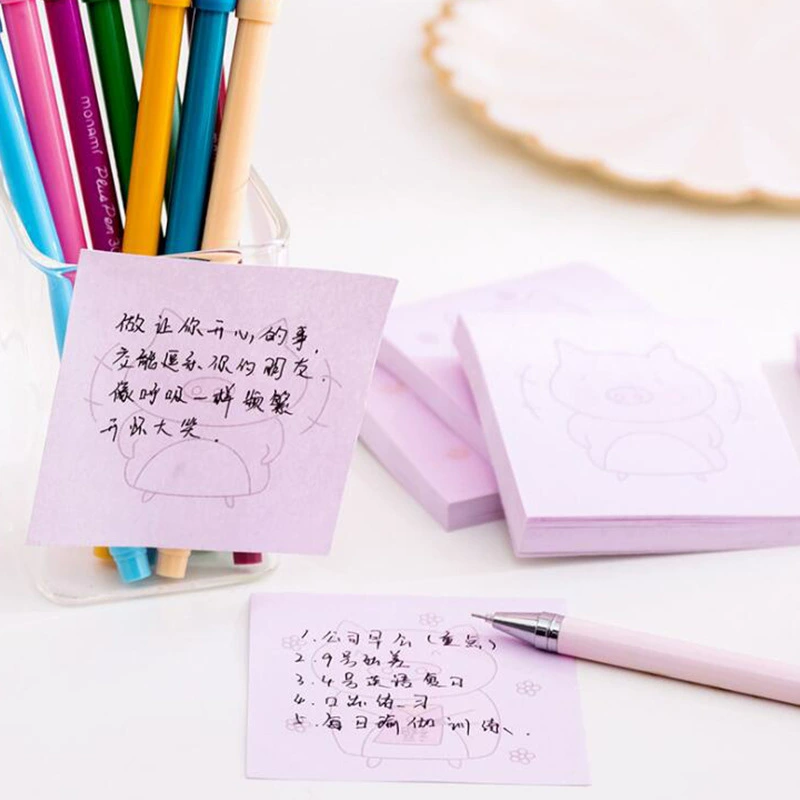 monami Plus Pen 3
做让你开心的事,
交能逗乐你的朋友.
像呼吸一样频繁
开怀大笑.
1.公司早会(重点)
2.9号出差
3.4号英语复习
4.口语练习
5.每日瑜伽训练.